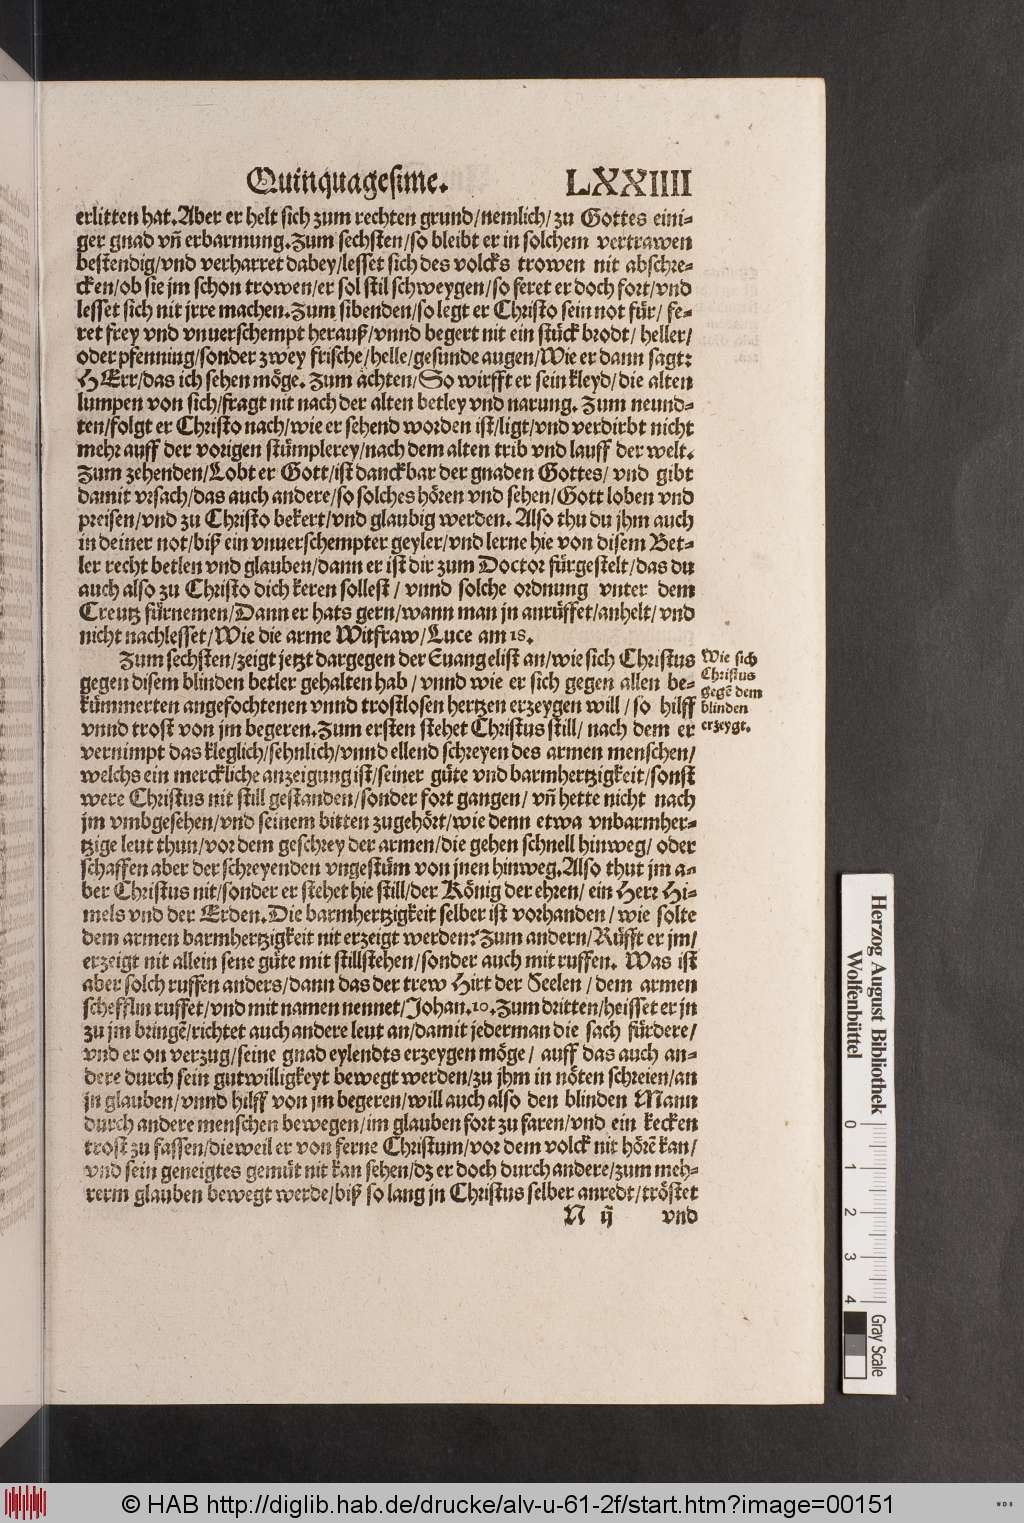 Quinquagesime. LXXIIII
erlitten hat. Aber er helt sich zum rechten grund/ nemlich/ zu Gottes eini-
ger gnad vñ erbarmung. Zum sechsten/ so bleibt er in solchem vertrawen
bestendig/ vnd verharret dabey/ lesset sich des volcks trowen nit abschre-
cken/ ob sie jm schon trowen/ er sol stil schweygen/ so feret er doch fort/ vnd
lesset sich nit jrre machen. Zum sibenden/ so legt er Christo sein not für/ fe-
ret frey vnd vnuerschempt herauß/ vnnd begert nit ein stück brodt/ heller/
oder pfenning/ sonder zwey frische/ helle/ gesunde augen/ Wie er dann sagt:
HErr/ das ich sehen möge. Zum achten/ So wirfft er sein kleyd/ die alten
lumpen von sich/ fragt nit nach der alten betley vnd narung. Zum neund-
ten/ folgt er Christo nach/ wie er sehend worden ist/ ligt/ vnd verdirbt nicht
mehr auff der vorigen stümplerey/ nach dem alten trib vnd lauff der welt.
Zum zehenden/ Lobt er Gott/ ist danckbar der gnaden Gottes/ vnd gibt
damit vrsach/ das auch andere/ so solches hören vnd sehen/ Gott loben vnd
preisen/ vnd zu Christo bekert/ vnd glaubig werden. Also thu du jhm auch
in deiner not/ biß ein vnuerschempter geyler/ vnd lerne hie von disem Bet-
ler recht betlen vnd glauben/ dann er ist dir zum Doctor fürgestelt/ das du
auch also zu Christo dich keren sollest/ vnnd solche ordnung vnter dem
Creutz fürnemen/ Dann er hats gern/ wann man jn anrüffet/ anhelt/ vnd
nicht nachlesset/ Wie die arme Witfraw/ Luce am 18.
Zum sechsten/ zeigt jetzt dargegen der Euangelist an/ wie sich Christus
gegen disem blinden betler gehalten hab/ vnnd wie er sich gegen allen be-
kümmerten angefochtenen vnnd trostlosen hertzen erzeygen will/ so hilff
vnnd trost von jm begeren. Zum ersten stehet Christus still/ nach dem er
vernimpt das kleglich/ sehnlich/ vnnd ellend schreyen des armen menschen/
welchs ein merckliche anzeigung ist/ seiner güte vnd barmhertzigkeit/ sonst
were Christus nit still gestanden/ sonder fort gangen/ vñ hette nicht nach
jm vmbgesehen/ vnd seinem bitten zugehört/ wie denn etwa vnbarmher-
tzige leut thun/ vor dem geschrey der armen/ die gehen schnell hinweg/ oder
schaffen aber der schreyenden vngestüm von jnen hinweg. Also thut jm a-
ber Christus nit/ sonder er stehet hie still/ der König der ehren/ ein Herr Hi-
mels vnd der Erden. Die barmhertzigkeit selber ist vorhanden/ wie solte
dem armen barmhertzigkeit nit erzeigt werden? Zum andern/ Rüfft er jm/
erzeigt nit allein sene güte mit stillstehen/ sonder auch mit ruffen. Was ist
aber solch ruffen anders/ dann das der trew Hirt der Seelen/ dem armen
schefflin ruffet/ vnd mit namen nennet/ Johan. 10. Zum dritten/ heisset er jn
zu jm bringē/ richtet auch andere leut an/ damit jederman die sach fürdere/
vnd er on verzug/ seine gnad eylendts erzeygen möge/ auff das auch an-
dere durch sein gutwilligkeyt bewegt werden/ zu jhm in nöten schreien/ an
jn glauben/ vnnd hilff von jm begeren/ will auch also den blinden Mann
durch andere menschen bewegen/ im glauben fort zu faren/ vnd ein kecken
trost zu fassen/ dieweil er von ferne Christum/ vor dem volck nit hörē kan/
vnd sein geneigtes gemüt nit kan sehen/ dz er doch durch andere/ zum meh-
rerm glauben bewegt werde/ biß so lang jn Christus selber anredt/ tröstet
N ij vnd
Wie sich
Christus
gegē dem
blinden
erzeygt.
Herzog August Bibliothek
Wolfenbüttel
0 1 2 3 4
Gray Scale
© HAB http://diglib.hab.de/drucke/alv-u-61-2f/start.htm?image=00151